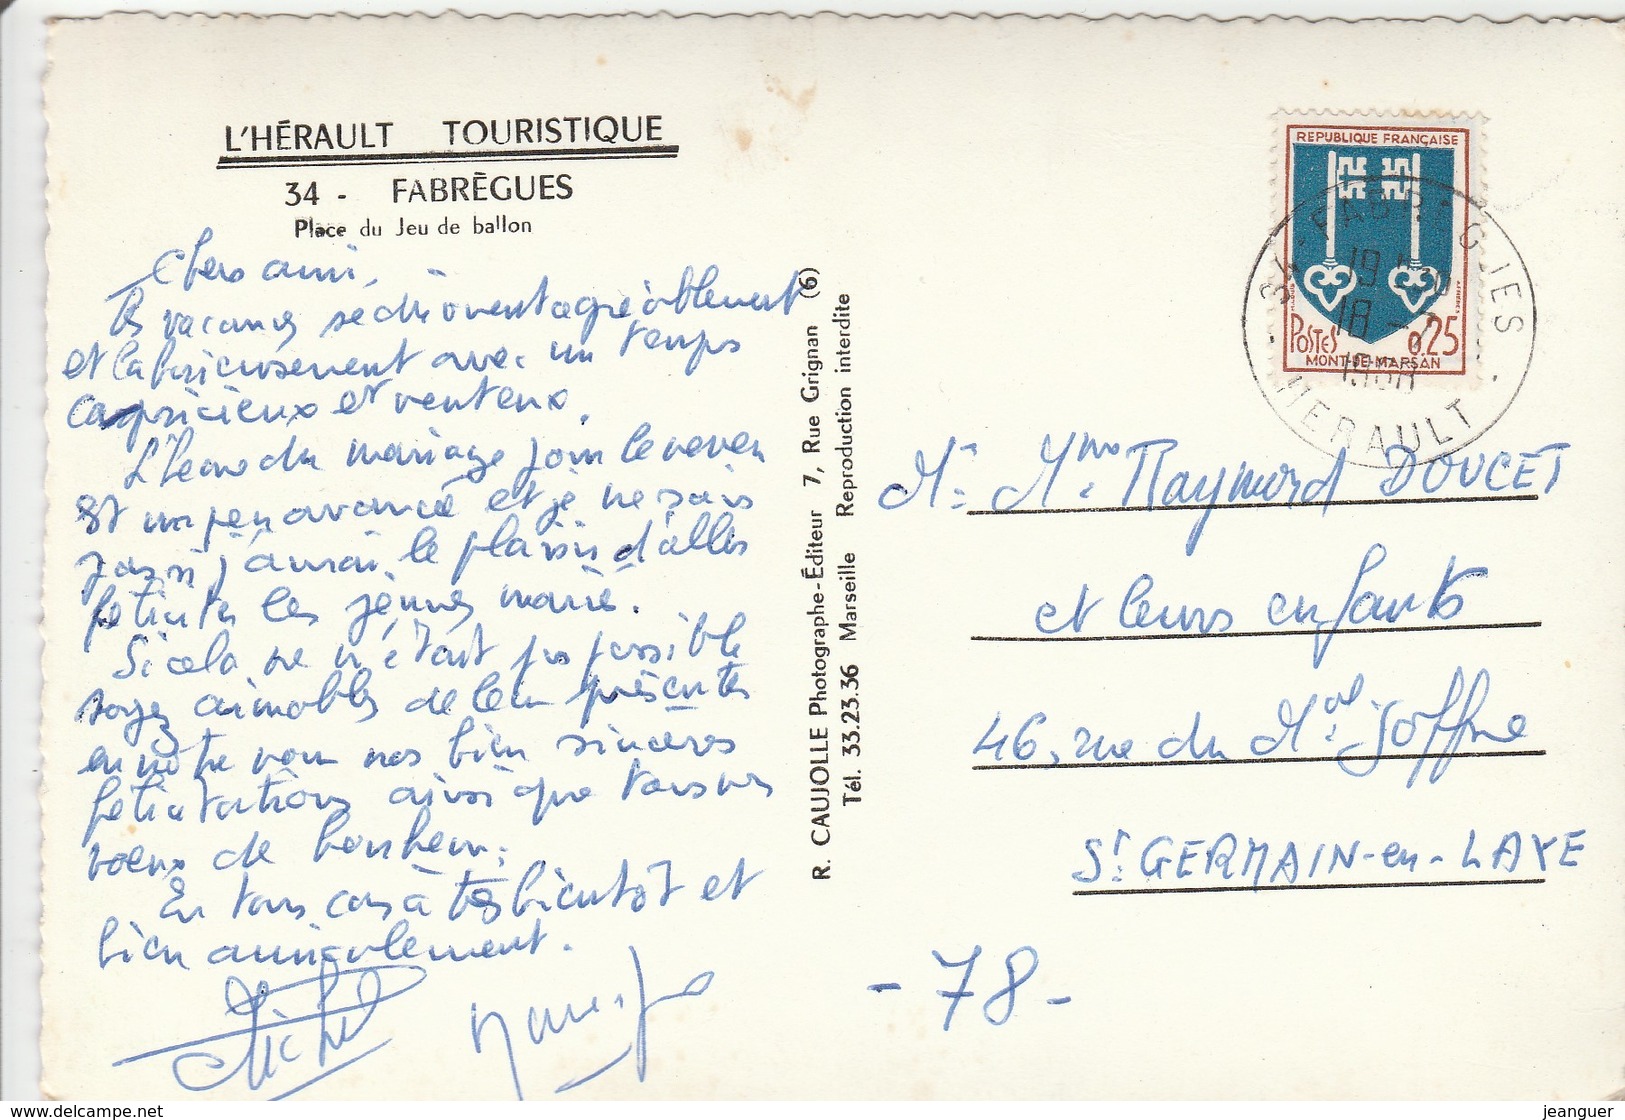 L'HÉRAULT TOURISTIQUE
34 - FABRÈGUES
Place du Jeu de ballon
Chers amis,
les vacances se déroulent agréablement
et laborieusement avec un temps
capricieux et venteux.
L'heure du mariage pour le neveu
est un peu avancé et je ne sais
pas si j'aurai le plaisir d'aller
féliciter les jeunes marié.
Si cela ne m'était pas possible
soyez aimables de leur présenter
en notre nom nos bien sincères
félicitations ainsi que tous nos
voeux de bonheur.
En tous cas à très bientôt et
bien amicalement.
Michel
R. CAUJOLLE Photographe-Éditeur 7, Rue Grignan (6)
Tél. 33.23.36 Marseille Reproduction interdite
REPUBLIQUE FRANÇAISE
POSTES 0,25
MONT-DE-MARSAN
34 - FABRÈGUES
19
18 - 7
1968
HERAULT
Mr. Mme Raymond DOUCET
et leurs enfants
46, rue du Mal Joffre
St GERMAIN-en-LAYE
- 78 -
delcampe.net
jeanguer